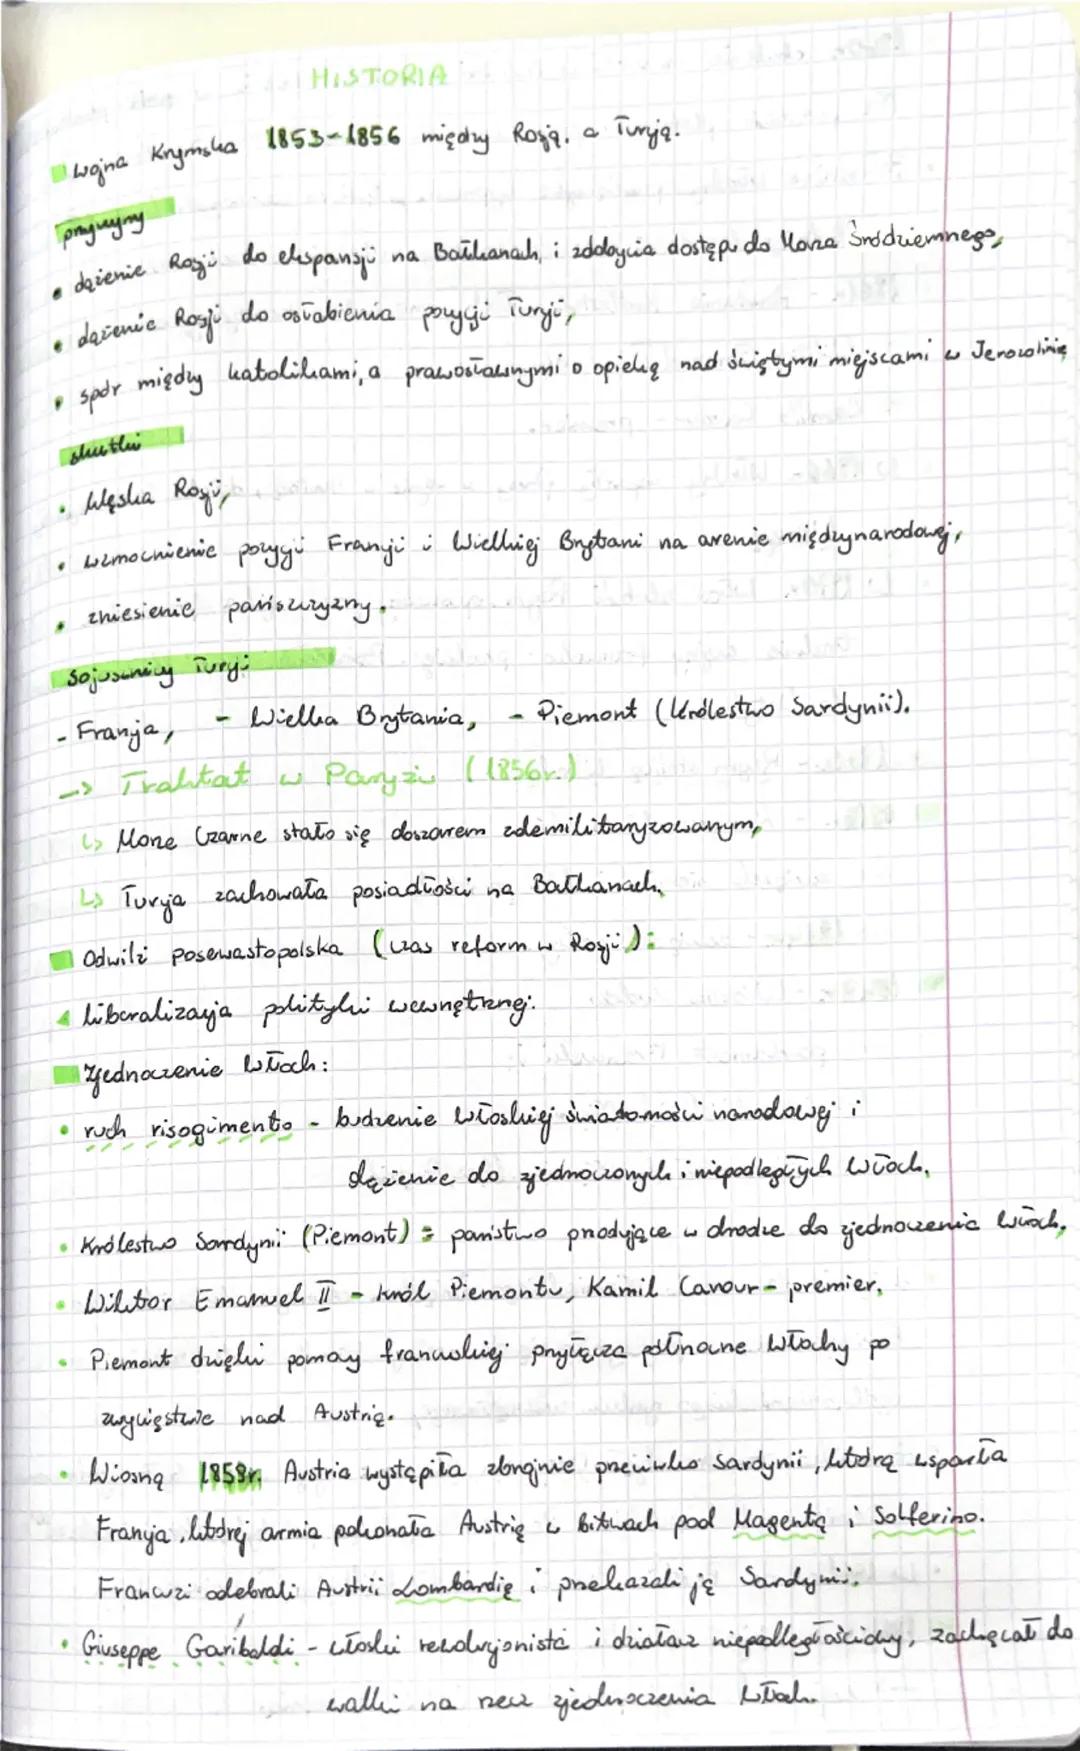 HISTORIA
Wojna Krymska 1853-1856 między Rosją, a Turcją.
przyczyny
• dążenie Rosji do ekspansji na Bałkanach, i zdobycia dostępu do Morza Śródziemnego,
• dążenie Rosji do osłabienia pozycji Turcji,
• spór między katolikami, a prawosławnymi o opiekę nad świętymi miejscami w Jerozolimie
skutki
• klęska Rosji,
• wzmocnienie pozycji Francji i Wielkiej Brytani na arenie międzynarodowej,
• zniesienie pańszczyzny.
Sojusznicy Turcji
- Francja, - Wielka Brytania, - Piemont (Królestwo Sardynii).
-> Traktat w Paryżu (1856r.)
↳ Morze Czarne stało się obszarem zdemilitaryzowanym,
↳ Turcja zachowała posiadłości na Bałkanach.
Odwilż posewastopolska (czas reform w Rosji):
liberalizacja polityki wewnętrznej.
Zjednoczenie Włoch:
• ruch risogimento - budzenie włoskiej świadomości narodowej i
dążenie do zjednoczonych i niepodległych Włoch.
• Królestwo Sardynii (Piemont) = państwo przodujące w drodze do zjednoczenia Włoch,
• Wiktor Emanuel II - król Piemontu, Kamil Cavour - premier,
• Piemont dzięki pomocy francuskiej przyłącza północne Włochy po
zwycięstwie nad Austrią.
• Wiosną 1859r. Austria wystąpiła zbrojnie przeciwko Sardynii, którą wsparła
Francja, której armia pokonała Austrię w bitwach pod Magentą i Solferino.
Francuzi odebrali Austrii Lombardię i przekazali ją Sardynii.
• Giuseppe Garibaldi - włoski rewolucjonista i działacz niepodległościowy, zachęcał do
walki na rzecz zjednoczenia Włoch.